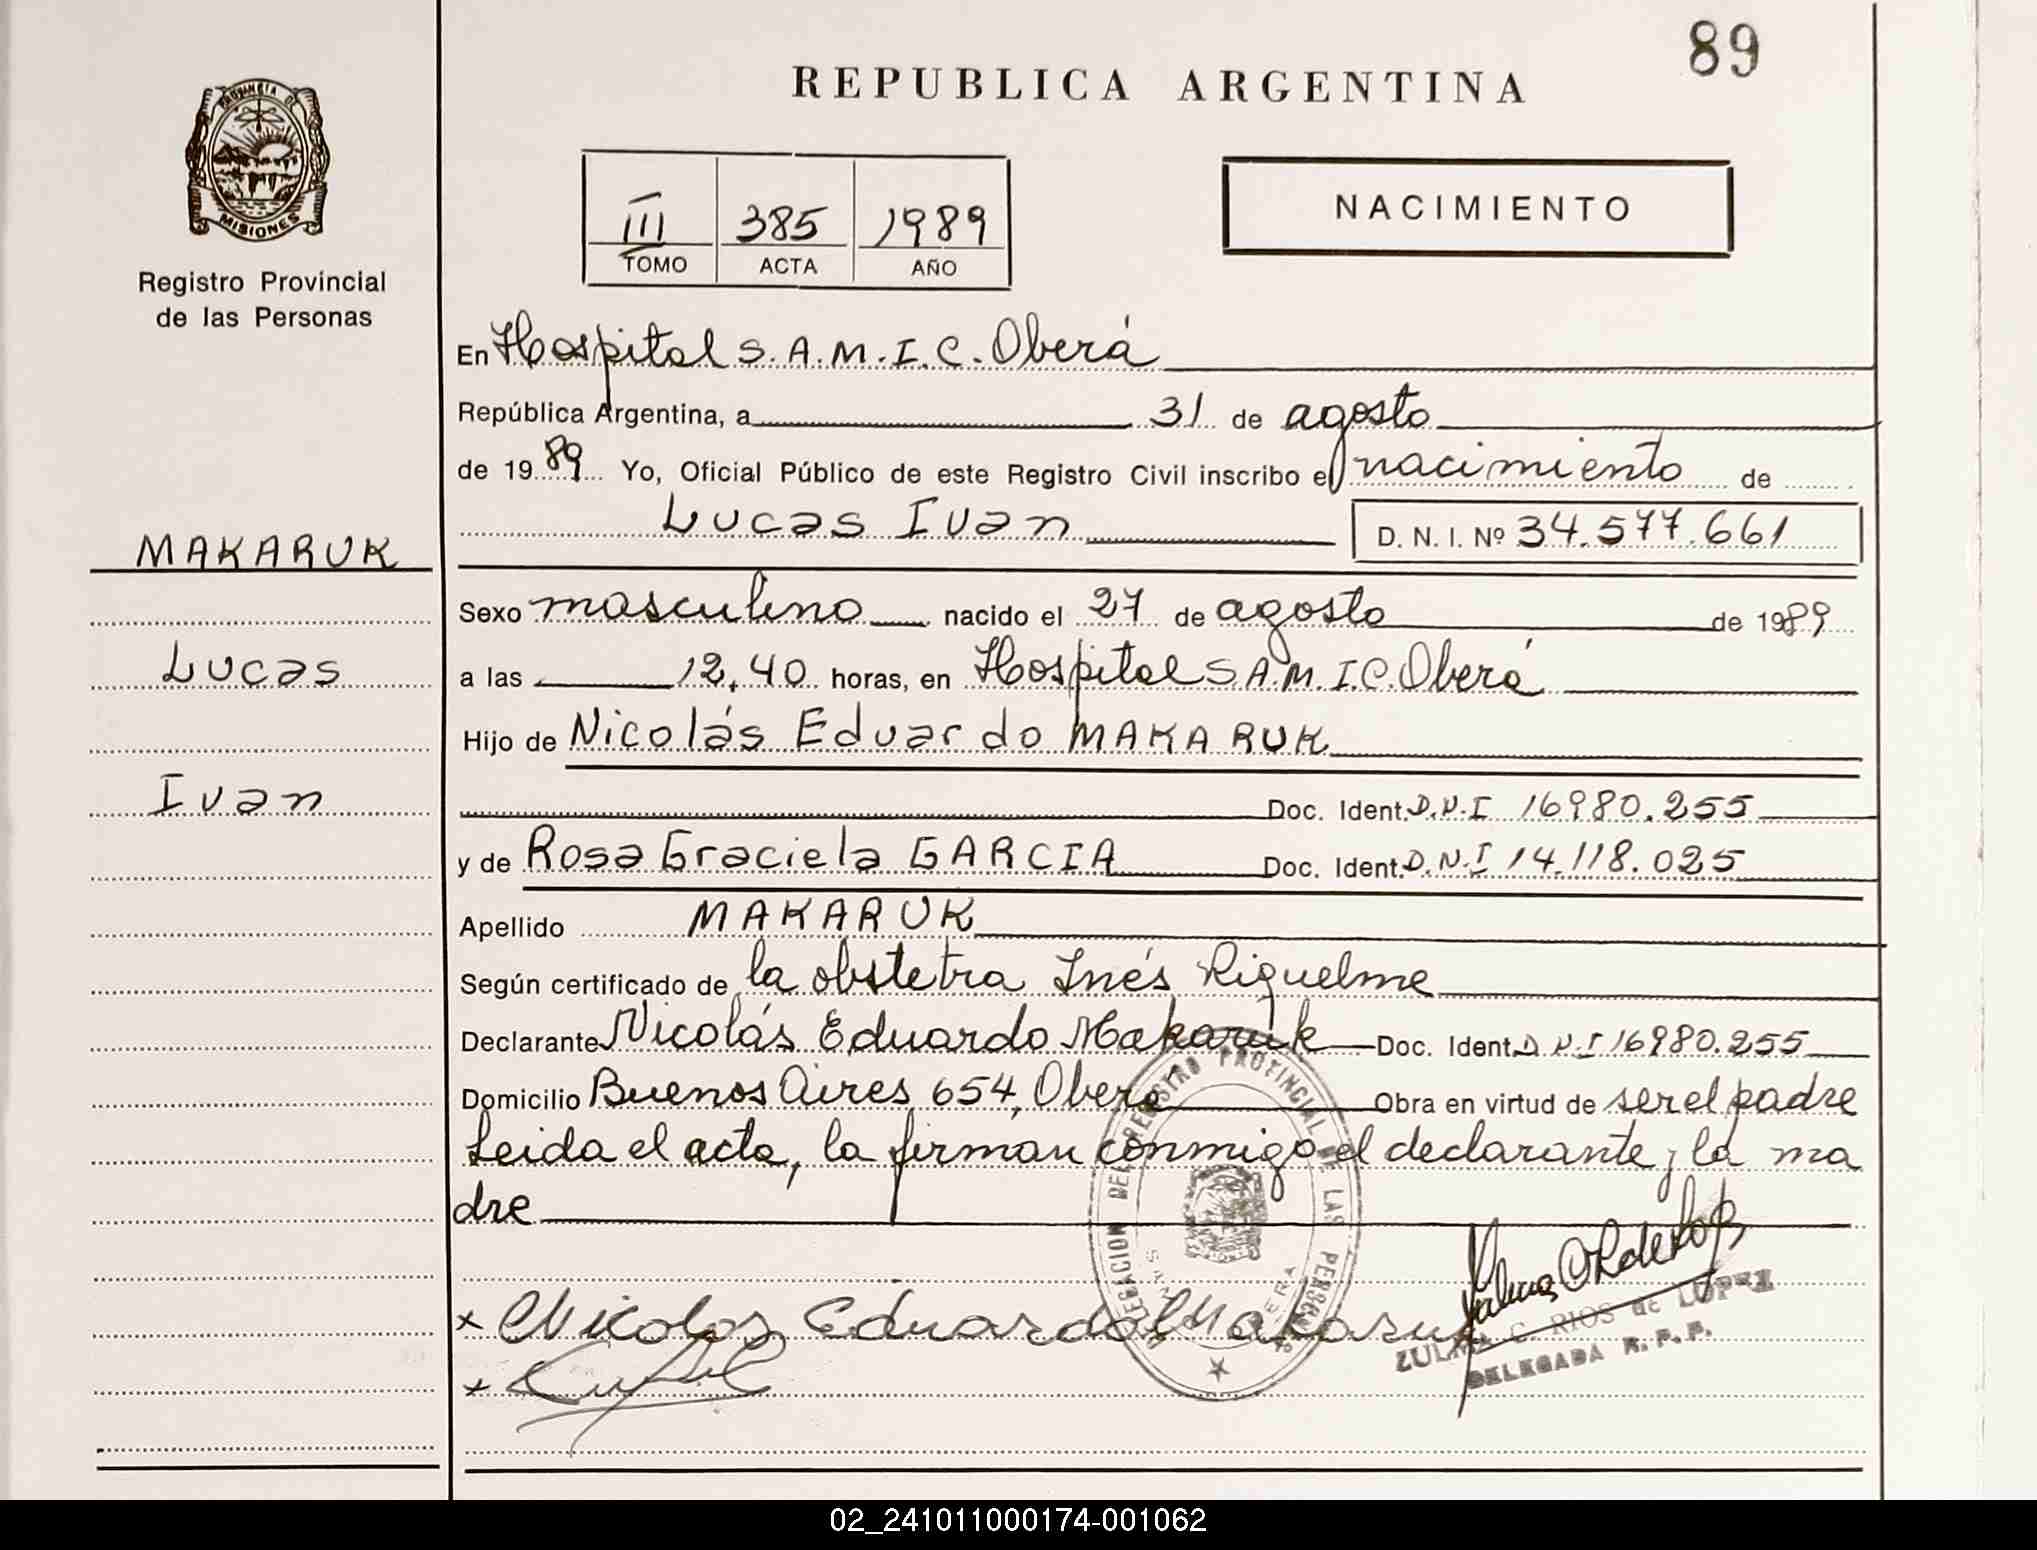 89
REPUBLICA ARGENTINA
PROVINCIA DE
MISIONES
Registro Provincial
de las Personas
III 385 1989
TOMO ACTA AÑO
NACIMIENTO
En Hospital S.A.M.I.C. Oberá
República Argentina, a 31 de agosto
de 1989 Yo, Oficial Público de este Registro Civil inscribo el nacimiento de
Lucas Ivan D. N. I. Nº 34.577.661
MAKARUK
Lucas
Ivan
Sexo masculino nacido el 27 de agosto de 1989
a las 12,40 horas, en Hospital S.A.M.I.C. Oberá
Hijo de Nicolás Eduardo MAKARUK
Doc. Ident. D.N.I 16980.255
y de Rosa Graciela GARCIA Doc. Ident. D.N.I 14.118.025
Apellido MAKARUK
Según certificado de la obstetra Inés Riquelme
Declarante Nicolás Eduardo Makaruk Doc. Ident. D.N.I 16980.255
Domicilio Buenos Aires 654, Oberá Obra en virtud de ser el padre
Leida el acta, la firman conmigo el declarante y la ma
dre
DELEGACION DEL REGISTRO PROVINCIAL DE LAS PERSONAS
x Nicolas Eduardo Makaruk
x
ZULMA C. RIOS de LOPEZ
DELEGADA R. P. P.
02_241011000174-001062